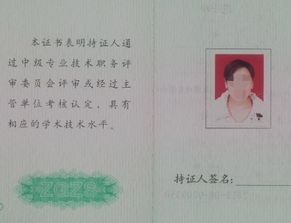 本证书表明持证人通
过中级专业技术职务评
审委员会评审或经过主
管单位考核认定，具有
相应的学术技术水平。
持证人签名：